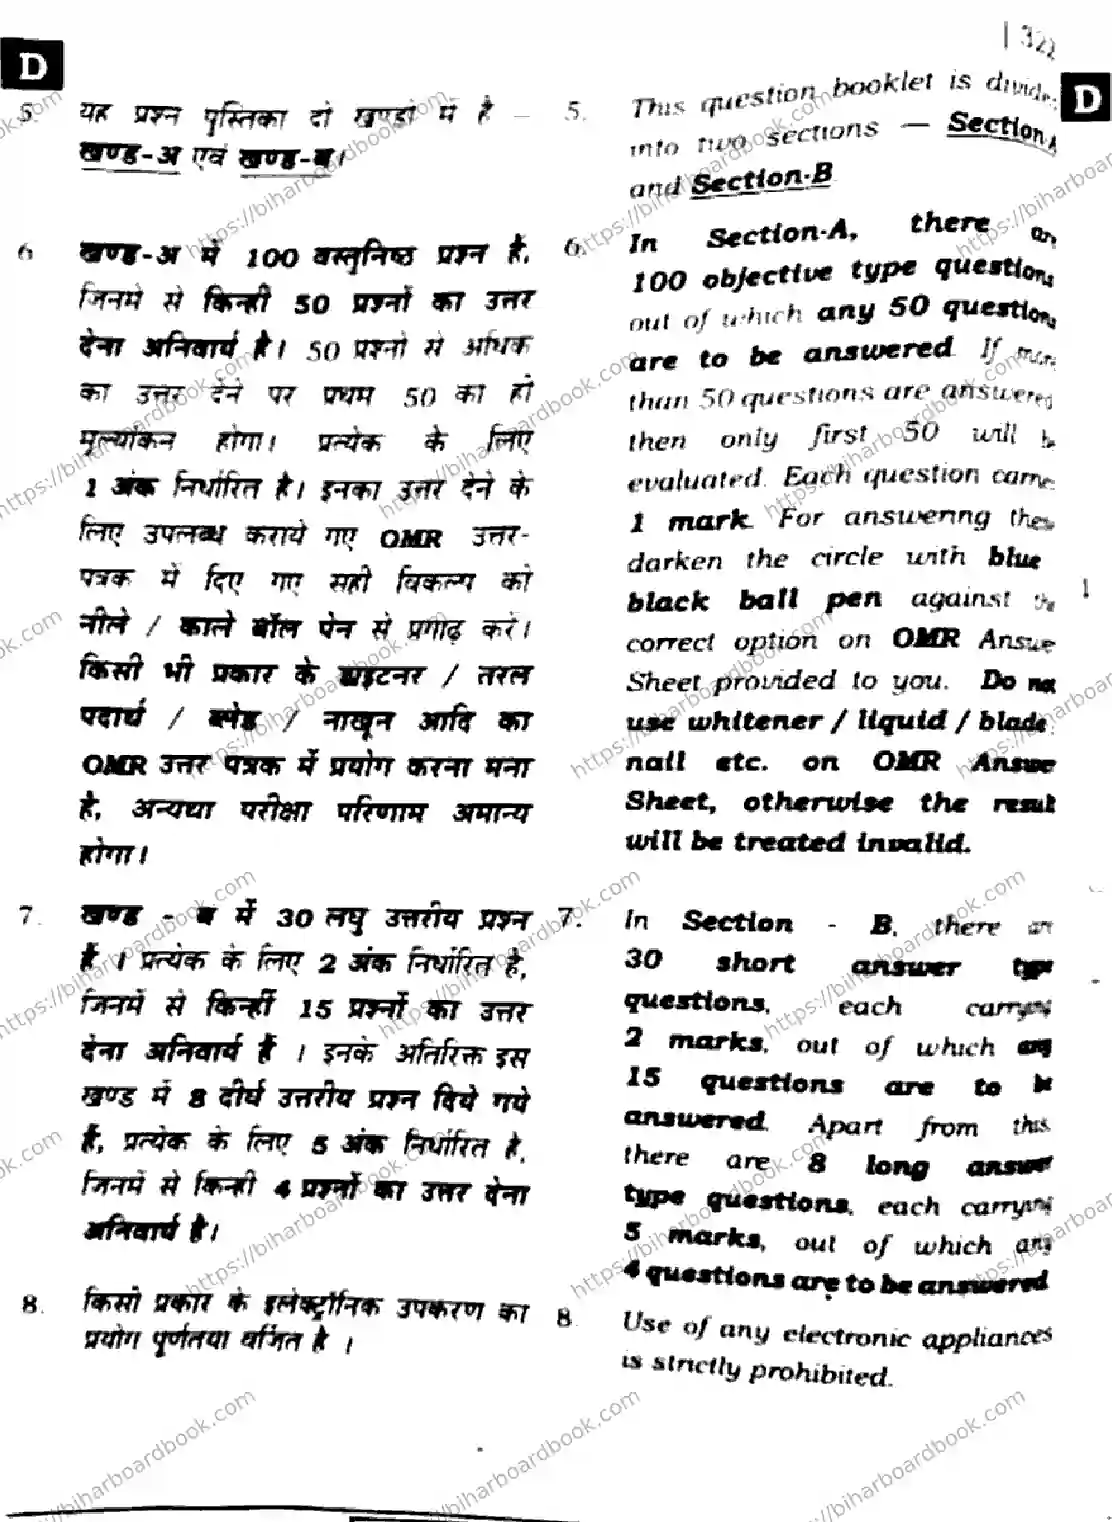 | 322
D
5. यह प्रश्न पुस्तिका दो खण्डों में है –
खण्ड-अ एवं खण्ड-ब।
6. खण्ड-अ में 100 वस्तुनिष्ठ प्रश्न हैं,
जिनमें से किन्हीं 50 प्रश्नों का उत्तर
देना अनिवार्य है। 50 प्रश्नों से अधिक
का उत्तर देने पर प्रथम 50 का ही
मूल्यांकन होगा। प्रत्येक के लिए
1 अंक निर्धारित है। इनका उत्तर देने के
लिए उपलब्ध कराये गए OMR उत्तर-
पत्रक में दिए गए सही विकल्प को
नीले / काले बॉल पेन से प्रगाढ़ करें।
किसी भी प्रकार के ह्वाइटनर / तरल
पदार्थ / ब्लेड / नाखून आदि का
OMR उत्तर पत्रक में प्रयोग करना मना
है, अन्यथा परीक्षा परिणाम अमान्य
होगा।
7. खण्ड - ब में 30 लघु उत्तरीय प्रश्न
हैं । प्रत्येक के लिए 2 अंक निर्धारित है,
जिनमें से किन्हीं 15 प्रश्नों का उत्तर
देना अनिवार्य है । इनके अतिरिक्त इस
खण्ड में 8 दीर्घ उत्तरीय प्रश्न दिये गये
हैं, प्रत्येक के लिए 5 अंक निर्धारित है,
जिनमें से किन्हीं 4 प्रश्नों का उत्तर देना
अनिवार्य है।
8. किसी प्रकार के इलेक्ट्रॉनिक उपकरण का
प्रयोग पूर्णतया वर्जित है ।
D
5. This question booklet is
into two sections — Section-A
and Section-B
6. In Section-A, there
100 objective type questions
out of which any 50 questions
are to be answered If
than 50 questions are answered
then only first 50 will
evaluated. Each question
1 mark. For answering
darken the circle with blue
black ball pen against
correct option on OMR
Sheet provided to you. Do not
use whitener / liquid / blade
nail etc. on OMR
Sheet, otherwise the result
will be treated invalid.
7. In Section - B, there
30 short answer type
questions, each
2 marks, out of which any
15 questions are to
answered. Apart from this,
there are 8 long answer
type questions, each
5 marks, out of which any
4 questions are to be answered
8. Use of any electronic appliances
is strictly prohibited.
https://biharboardbook.com/